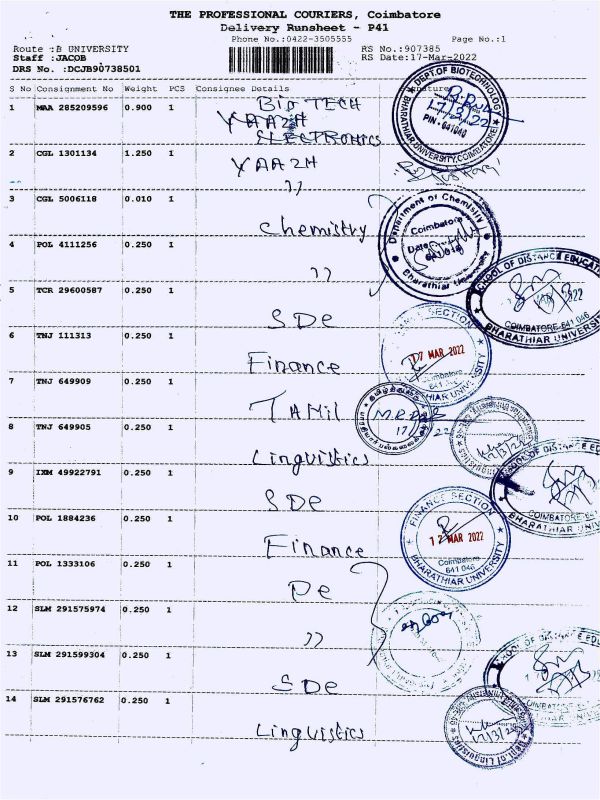 THE PROFESSIONAL COURIERS, Coimbatore
Delivery Runsheet - P41
Phone No.:0422-3505555 Page No.:1
Route :B UNIVERSITY RS No.:907385
Staff :JACOB RS Date:17-Mar-2022
DRS No. :DCJB90738501
S No Consignment No Weight PCS Consignee Details Signature
1 MAA 285209596 0.900 1 BIO TECH
YAAZH
ELECTRONICS
2 CGL 1301134 1.250 1 YAAZH
3 CGL 5006118 0.010 1 ,,
4 POL 4111256 0.250 1 Chemistry
5 TCR 29600587 0.250 1 ,,
6 TNJ 111313 0.250 1 SDE
7 TNJ 649909 0.250 1 Finance
8 TNJ 649905 0.250 1 TAMIL
9 IXM 49922791 0.250 1 Linguistics
10 POL 1884236 0.250 1 SDE
11 POL 1333106 0.250 1 Finance
12 SLM 291575974 0.250 1 DE
13 SLM 291599304 0.250 1 ,,
14 SLM 291576762 0.250 1 SDE
Linguistics
DEPT.OF BIOTECHNOLOGY
17/3/22
PIN - 641046
BHARATHIAR UNIVERSITY, COIMBATORE
Department of Chemistry
Coimbatore
Date
641 046
Bharathiar University
SCHOOL OF DISTANCE EDUCATION
MAR 2022
COIMBATORE-641 046
BHARATHIAR UNIVERSITY
SECTION
17 MAR 2022
Coimbatore
641 046
UNIVERSITY
17 22
FINANCE SECTION
17 MAR 2022
Coimbatore
641 046
BHARATHIAR UNIVERSITY
17/3/22
Dept.of Linguistics